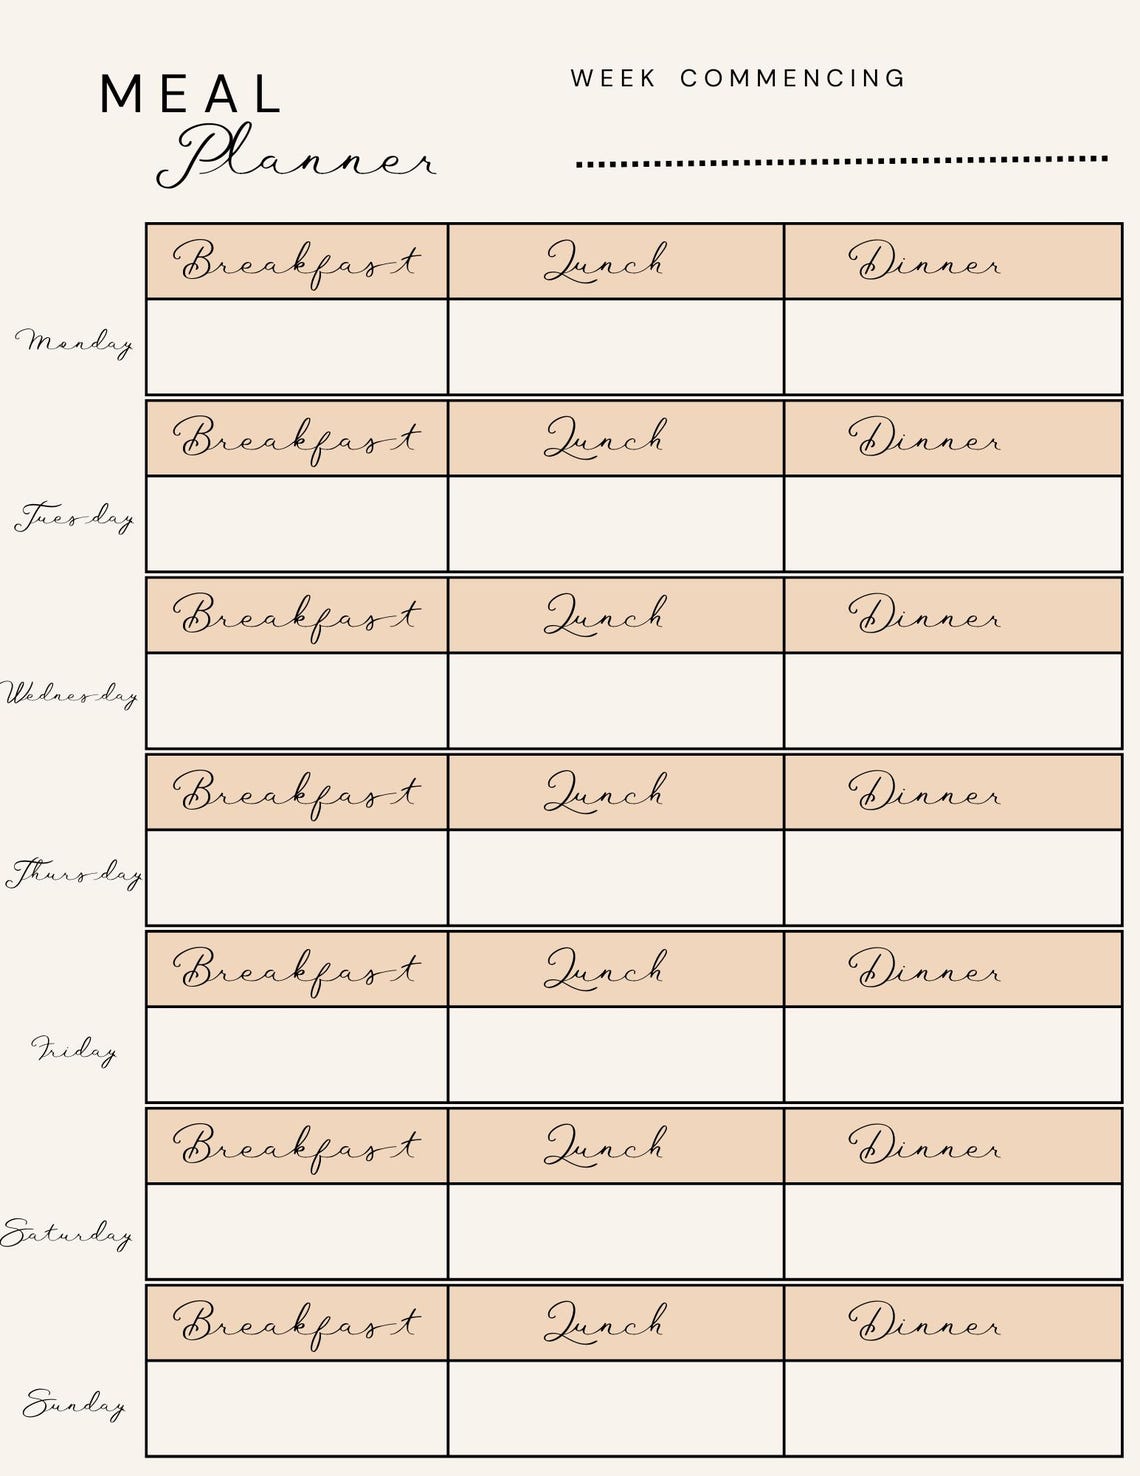 MEAL
Planner
WEEK COMMENCING
Breakfast Lunch Dinner
Monday
Breakfast Lunch Dinner
Tuesday
Breakfast Lunch Dinner
Wednesday
Breakfast Lunch Dinner
Thursday
Breakfast Lunch Dinner
Friday
Breakfast Lunch Dinner
Saturday
Breakfast Lunch Dinner
Sunday